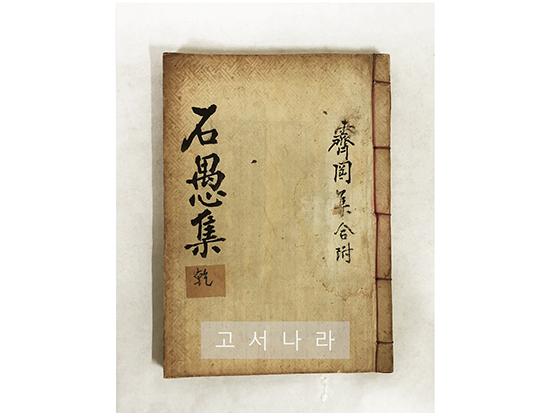 石愚集
乾
霽岡集合附
고서나라